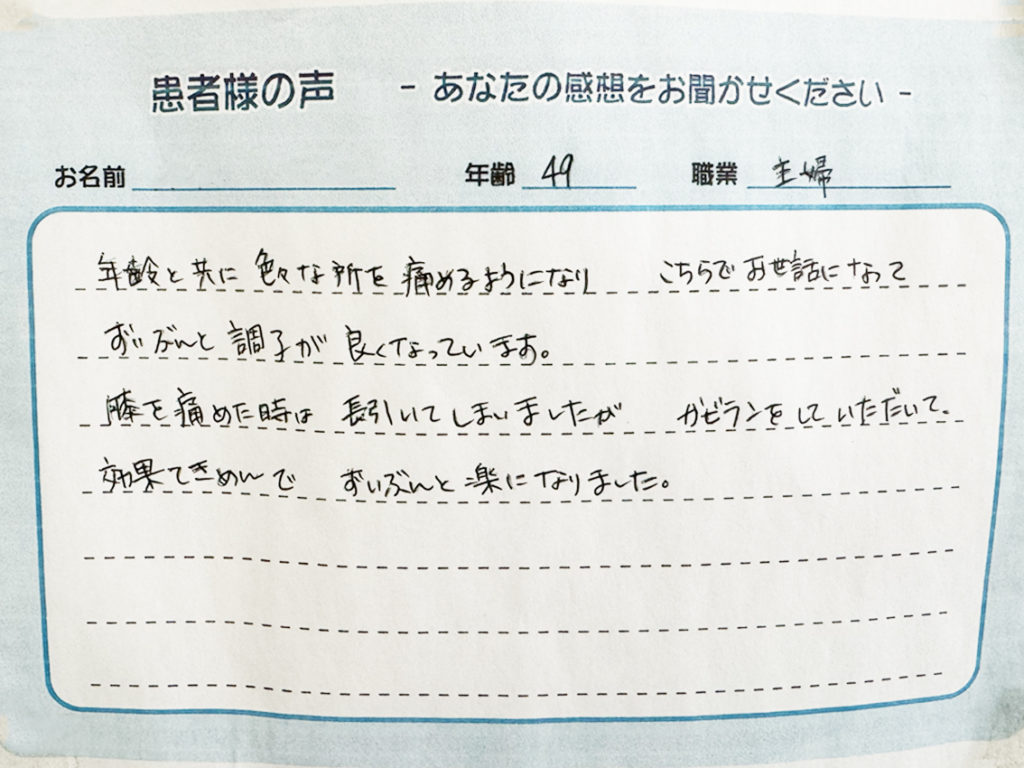 患者様の声 - あなたの感想をお聞かせください -
お名前 年齢 49 職業 主婦
年齢と共に色々な所を痛めるようになり こちらでお世話になって
ずいぶんと調子が良くなっています。
膝を痛めた時は 長引いてしまいましたが ガビランをしていただいて、
効果てきめんで ずいぶんと楽になりました。